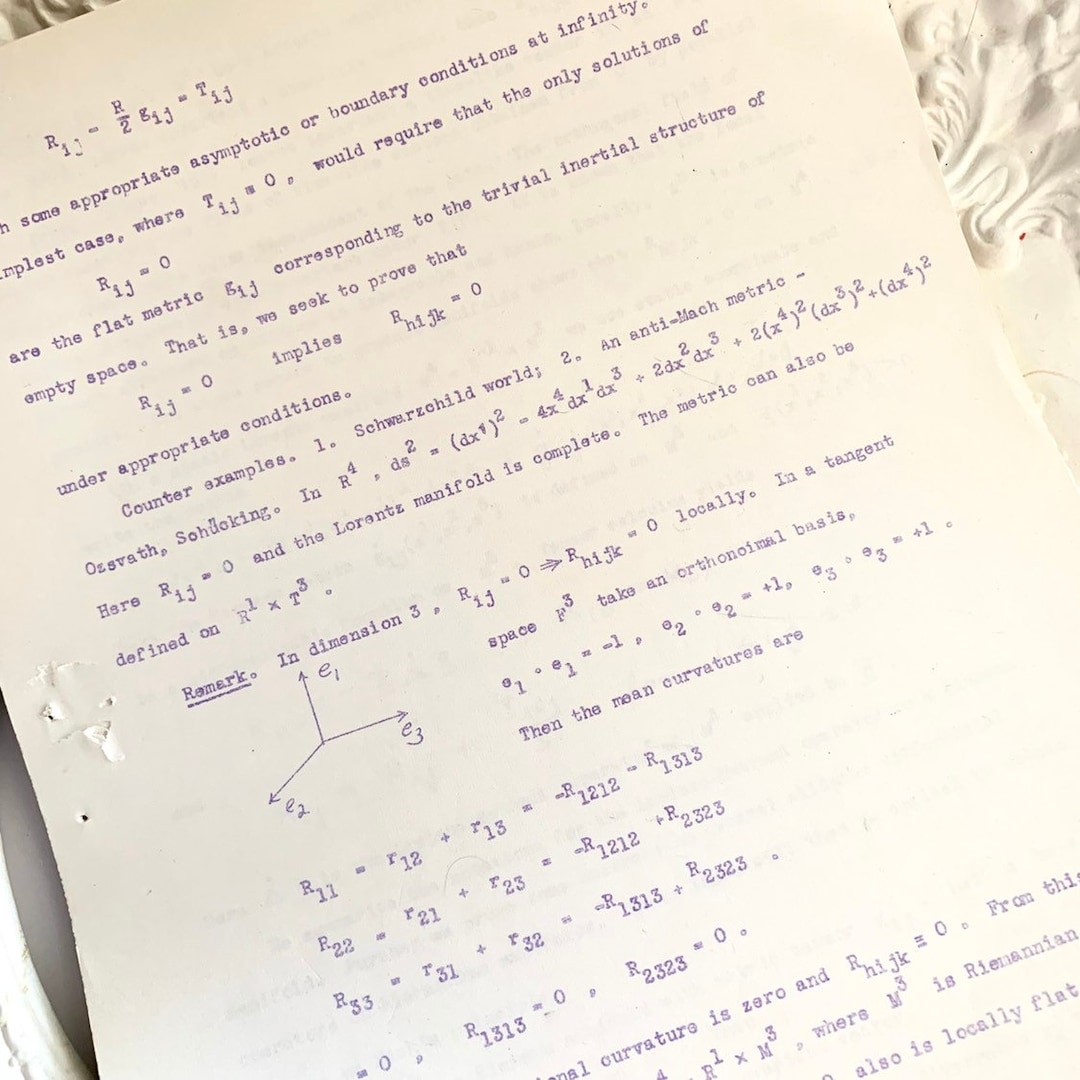 R_ij - R/2 g_ij = T_ij
some appropriate asymptotic or boundary conditions at infinity.
case, where T_ij = 0 , would require that the only solutions of
R_ij = 0
are the flat metric g_ij corresponding to the trivial inertial structure of
empty space. That is, we seek to prove that
R_ij = 0 implies R_hijk = 0
under appropriate conditions.
Counter examples. 1. Schwarzchild world; 2. An anti-Mach metric -
Ozsvath, Schücking. In R^4 , ds^2 = (dx^1)^2 - 4x^4dx^1dx^3 + 2dx^2dx^3 + 2(x^4)^2(dx^3)^2+(dx^4)^2
Here R_ij = 0 and the Lorentz manifold is complete. The metric can also be
defined on R^1 × T^3 .
Remark. In dimension 3 , R_ij = 0 ⇒ R_hijk = 0 locally. In a tangent
space E^3 take an orthonoimal basis,
e_1 · e_1 = -1 , e_2 · e_2 = +1, e_3 · e_3 = +1 .
Then the mean curvatures are
e_1
e_3
e_2
R_11 = r_12 + r_13 = -R_1212 - R_1313
R_22 = r_21 + r_23 = -R_1212 +R_2323
R_33 = r_31 + r_32 = -R_1313 + R_2323 .
= 0 , R_1313 = 0 , R_2323 = 0 .
curvature is zero and R_hijk ≡ 0 . From this
4 R^1 × M^3 , where M^3 is Riemannian
also is locally flat